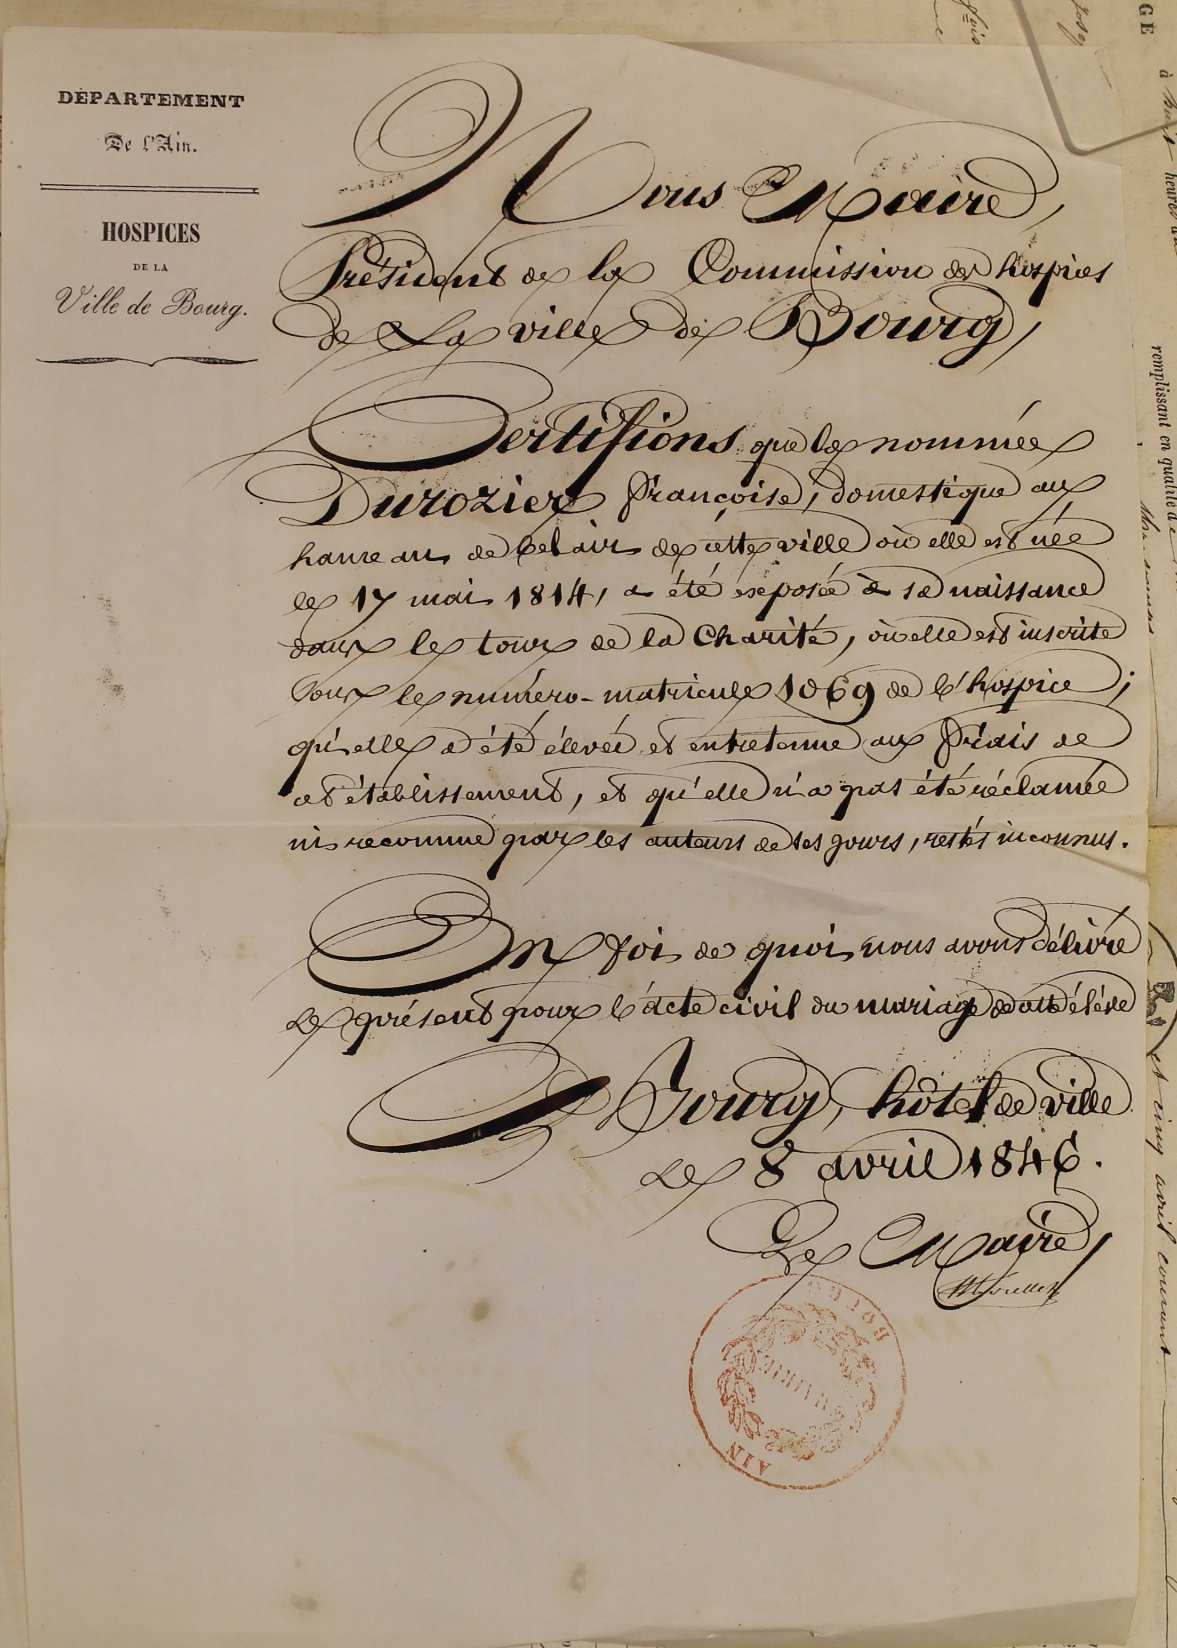 DÉPARTEMENT
De l'Ain.
HOSPICES
DE LA
Ville de Bourg.
Nous Maire,
Président de la Commission des hospices
de La ville de Bourg,
Certifions que la nommée
Durozier françoise, domestique au
hameau de bel air de cette ville où elle est née
le 17 mai 1814, a été exposée à sa naissance
dans le tour de la Charité, où elle est inscrite
sous le numéro-matricule 1069 de l'hospice;
qu'elle a été élevée et entretenue aux frais de
cet établissement, et qu'elle n'a pas été réclamée
ni reconnue par les auteurs de ses jours, restés inconnus.
En foi de quoi nous avons délivré
Le présent pour l'acte civil du mariage de cette élève
A Bourg, hôtel de ville
Le 8 avril 1846.
Le Maire,
BOURG
MAIRIE
AIN
GE
à huit heures du
remplissant en qualité de
et cinq avril courant